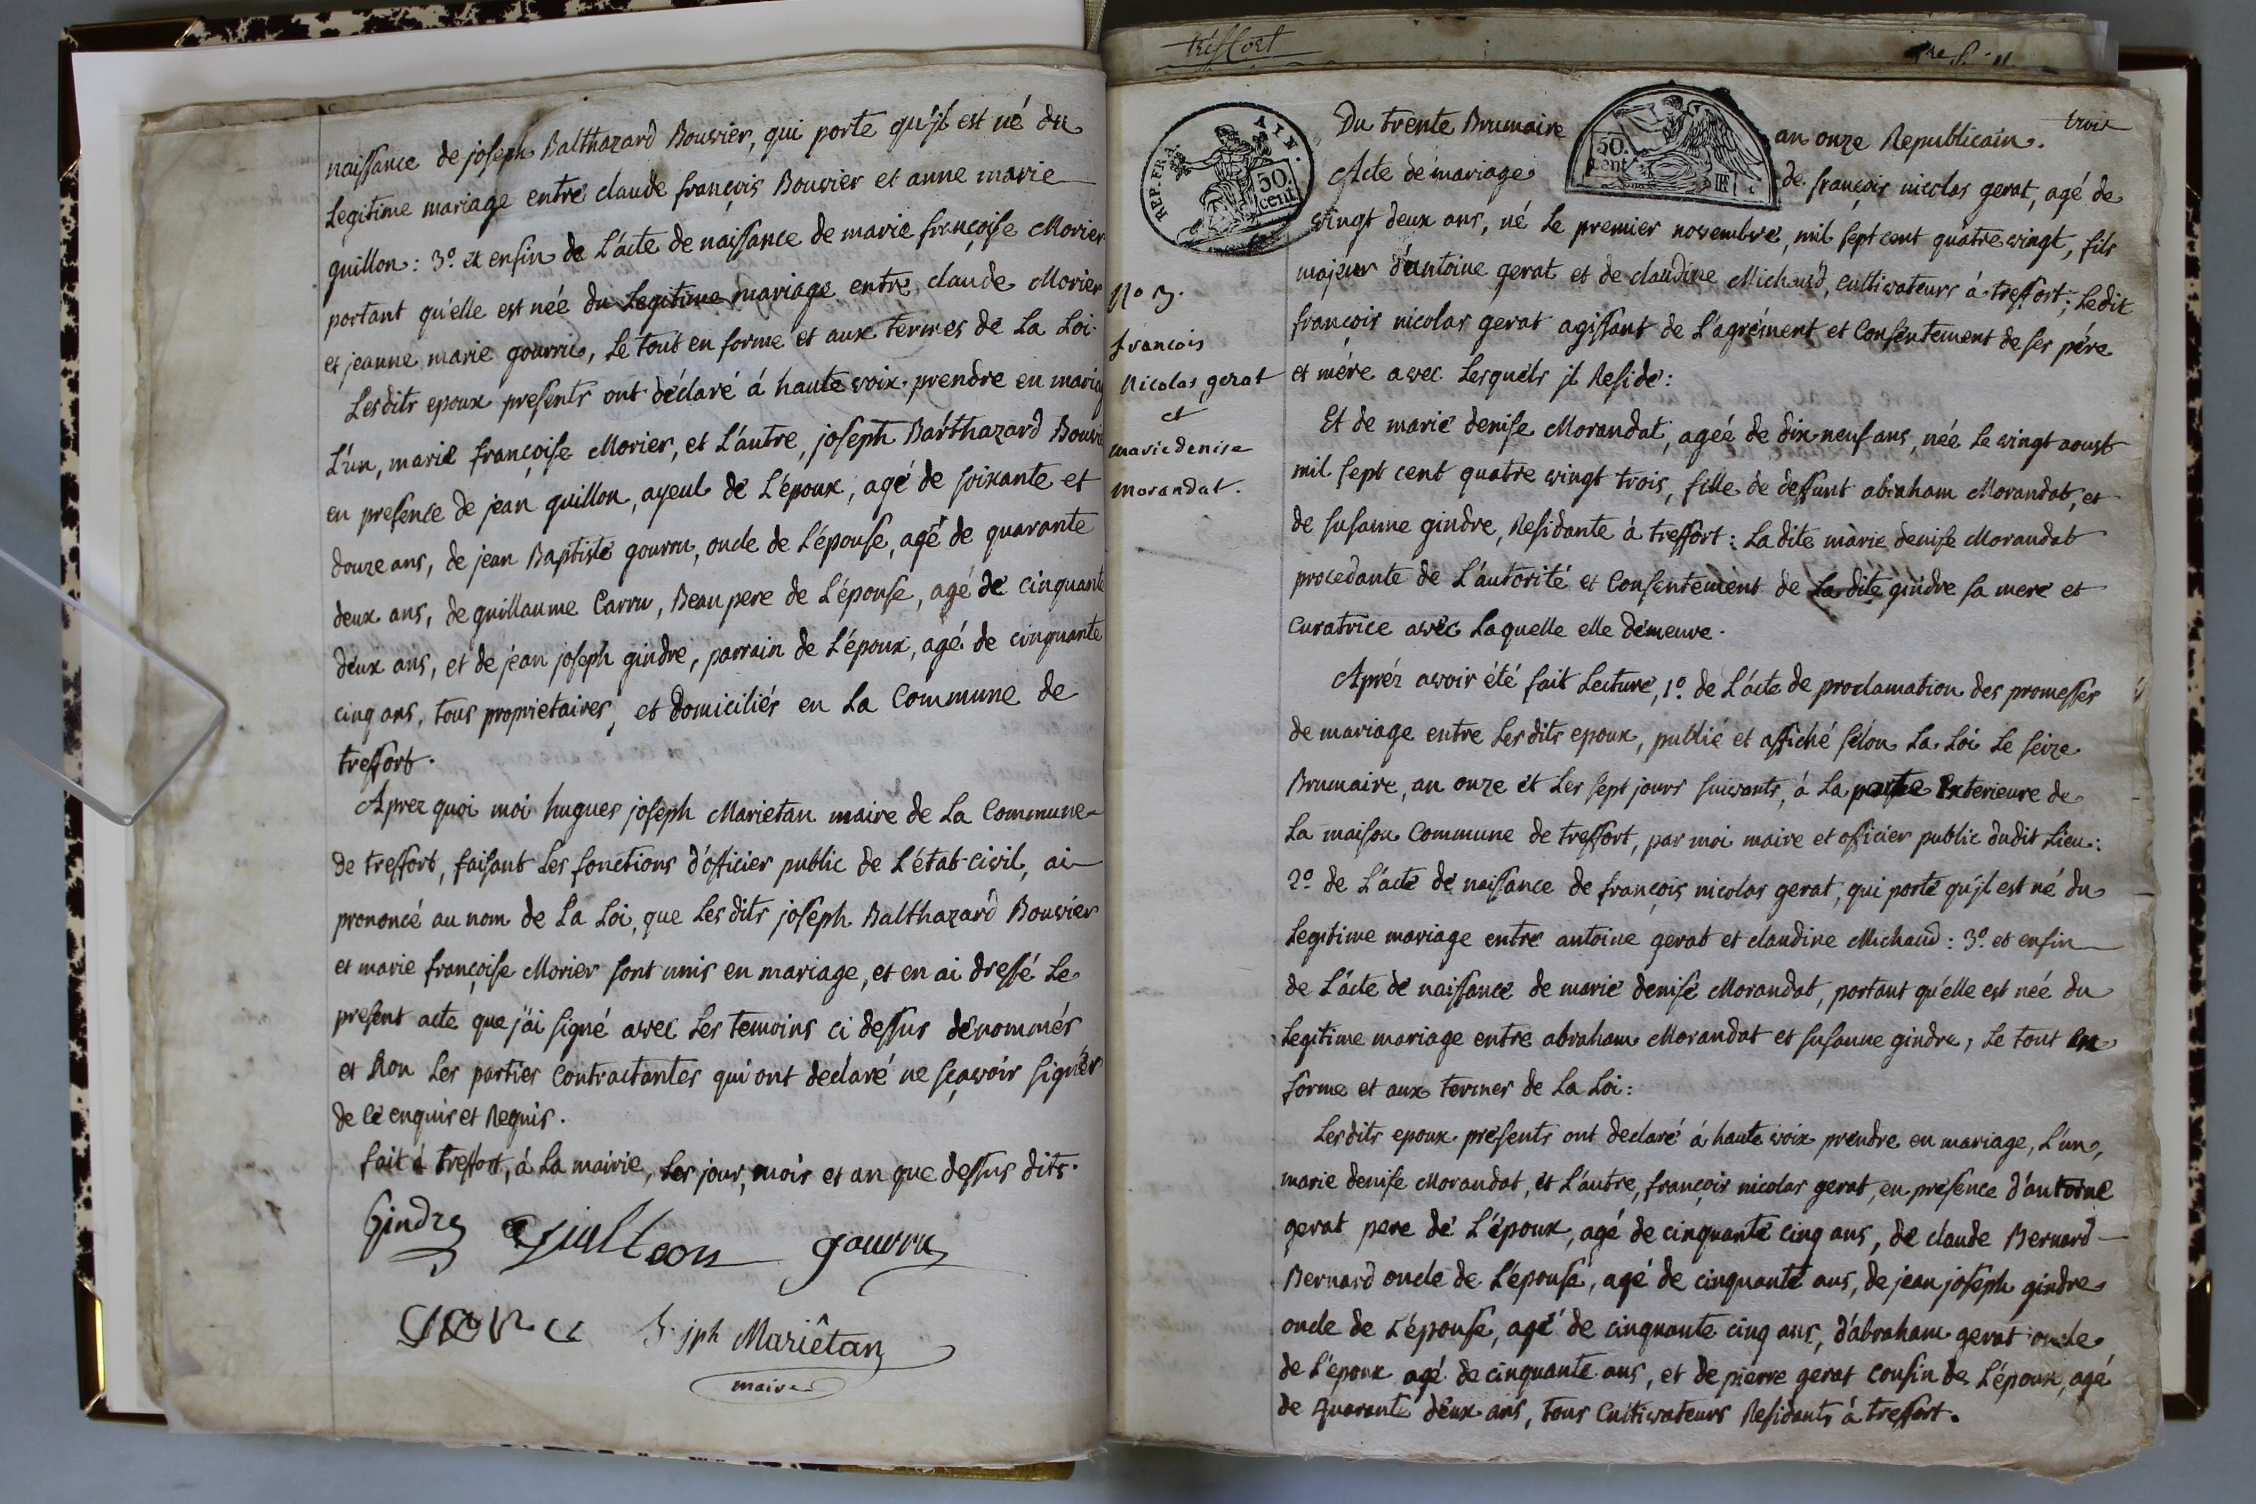 naissance de joseph Balthazard Bouvier, qui porte qu'il est né du
Legitime mariage entre claude françois Bouvier et anne marie
guillon: 3.º et enfin de L'acte de naissance de marie françoise Morier
portant qu'elle est née du Legitime mariage entre claude Morier
et jeanne marie gourru, Le tout en forme et aux termes de La Loi.
Lesdits epoux presents ont déclaré á haute voix prendre en mariag
L'un, marie françoise Morier, et L'autre, joseph Barthazard Bouvie
en presence de jean guillon, ayeul de L'époux, agé de soixante et
douze ans, de jean Baptiste gourru, oncle de L'épouse, agé de quarante
deux ans, de guillaume Carru, Beau pere de L'épouse, agé de cinquante
deux ans, et de jean joseph gindre, parrain de L'époux, agé de cinquante
cinq ans, tous proprietaires, et domiciliés en La Commune de
treffort.
Aprez quoi moi hugues joseph Mariétan maire de La Commune
de treffort, faisant Les fonctions d'officier public de L'état-civil, ai
prononcé au nom de La Loi, que Lesdits joseph Balthazard Bouvier
et marie françoise Morier sont unis en mariage, et en ai dressé Le
present acte que j'ai signé avec Les temoins ci dessus dénommés
et Non Les parties Contractantes qui ont declaré ne sçavoir signer
de Ce enquis et Requis.
fait á treffort, á La mairie, Les jour, mois et an que dessus dits.
Gindre guilleon gourru
CARU h. jph Mariêtan
maire
treffort
REP. FRA. AIN.
50 cent
Du trente Brumaire
50. cent
an onze Republicain. trois
Acte de mariage
de françois nicolas gerat, agé de
vingt deux ans, né Le premier novembre, mil sept cent quatre vingt, fils
majeur d'antoine gerat et de claudine Michaud, cultivateurs á treffort; Ledit
françois nicolas gerat agissant de L'agrément et Consentement de ses pére
et mére avec Lesquels jl Reside:
Nº 3.
francois
Nicolas gerat
et
marie denise
morandat.
Et de marie denise Morandat, agée de dix-neuf ans, née Le vingt aoust
mil sept cent quatre vingt trois, fille de deffunt abraham Morandat, et
de susanne gindre, Residante á treffort: La dite marie denise Morandat
procedante de L'autorité et Consentement de La dite gindre sa mere et
Curatrice avec Laquelle elle demeure.
Aprés avoir été fait Lecture, 1.º de L'acte de proclamation des promesses
de mariage entre Lesdits epoux, publié et affiché sélon La Loi Le seize
Brumaire, an onze et Les sept jours suivants, á La porte Exterieure de
La maison Commune de treffort, par moi maire et officier public dudit Lieu:
2.º de L'acte de naissance de françois nicolas gerat, qui porte qu'jl est né du
Legitime mariage entre antoine gerat et claudine Michaud: 3.º et enfin
de L'acte de naissance de marie denise Morandat, portant qu'elle est née du
Legitime mariage entre abraham Morandat et susanne gindre, Le tout en
forme et aux termes de La Loi:
Lesdits epoux presents ont declaré á haute voix prendre en mariage, L'un,
marie denise Morandat, et L'autre, françois nicolas gerat, en presence d'antoine
gerat pere de L'époux, agé de cinquante cinq ans, de claude Bernard
Bernard oncle de L'épouse, agé de cinquante ans, de jean joseph gindre
oncle de L'épouse, agé de cinquante cinq ans, d'abraham gerat oncle
de L'epoux agé de cinquante ans, et de pierre gerat cousin de L'époux, agé
de Quarante deux ans, tous Cultivateurs Residants á treffort.